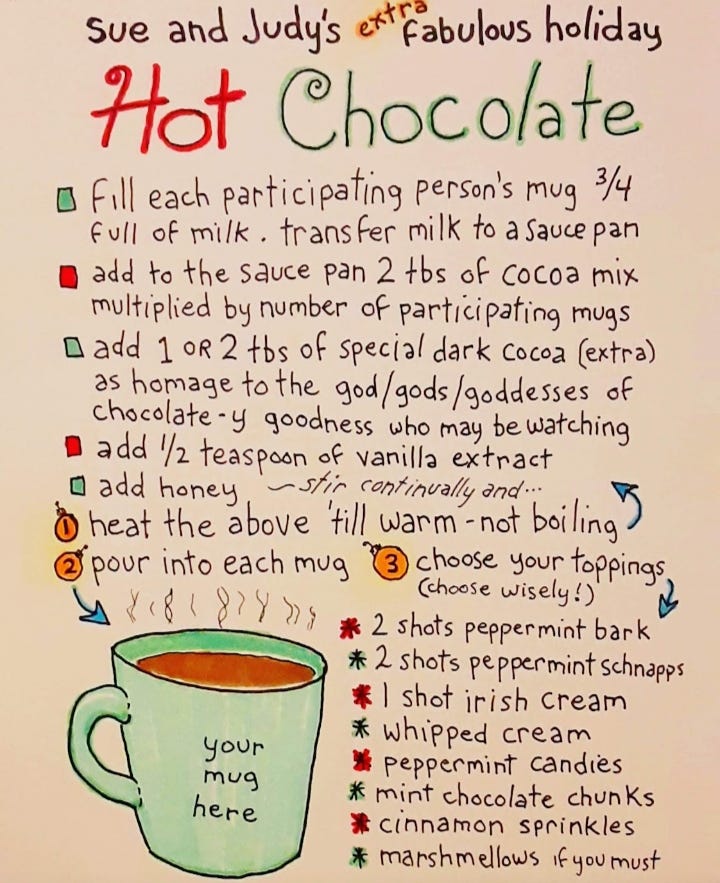 Sue and Judy's extra fabulous holiday
Hot Chocolate
fill each participating person's mug 3/4
full of milk. transfer milk to a sauce pan
add to the sauce pan 2 tbs of cocoa mix
multiplied by number of participating mugs
add 1 OR 2 tbs of special dark cocoa (extra)
as homage to the god/gods/goddesses of
chocolate-y goodness who may be watching
add 1/2 teaspoon of vanilla extract
add honey – stir continually and...
1 heat the above 'till warm - not boiling
2 pour into each mug
3 choose your toppings
(choose wisely!)
* 2 shots peppermint bark
* 2 shots peppermint schnapps
* 1 shot irish cream
* whipped cream
* peppermint candies
* mint chocolate chunks
* cinnamon sprinkles
* marshmellows if you must
your
mug
here